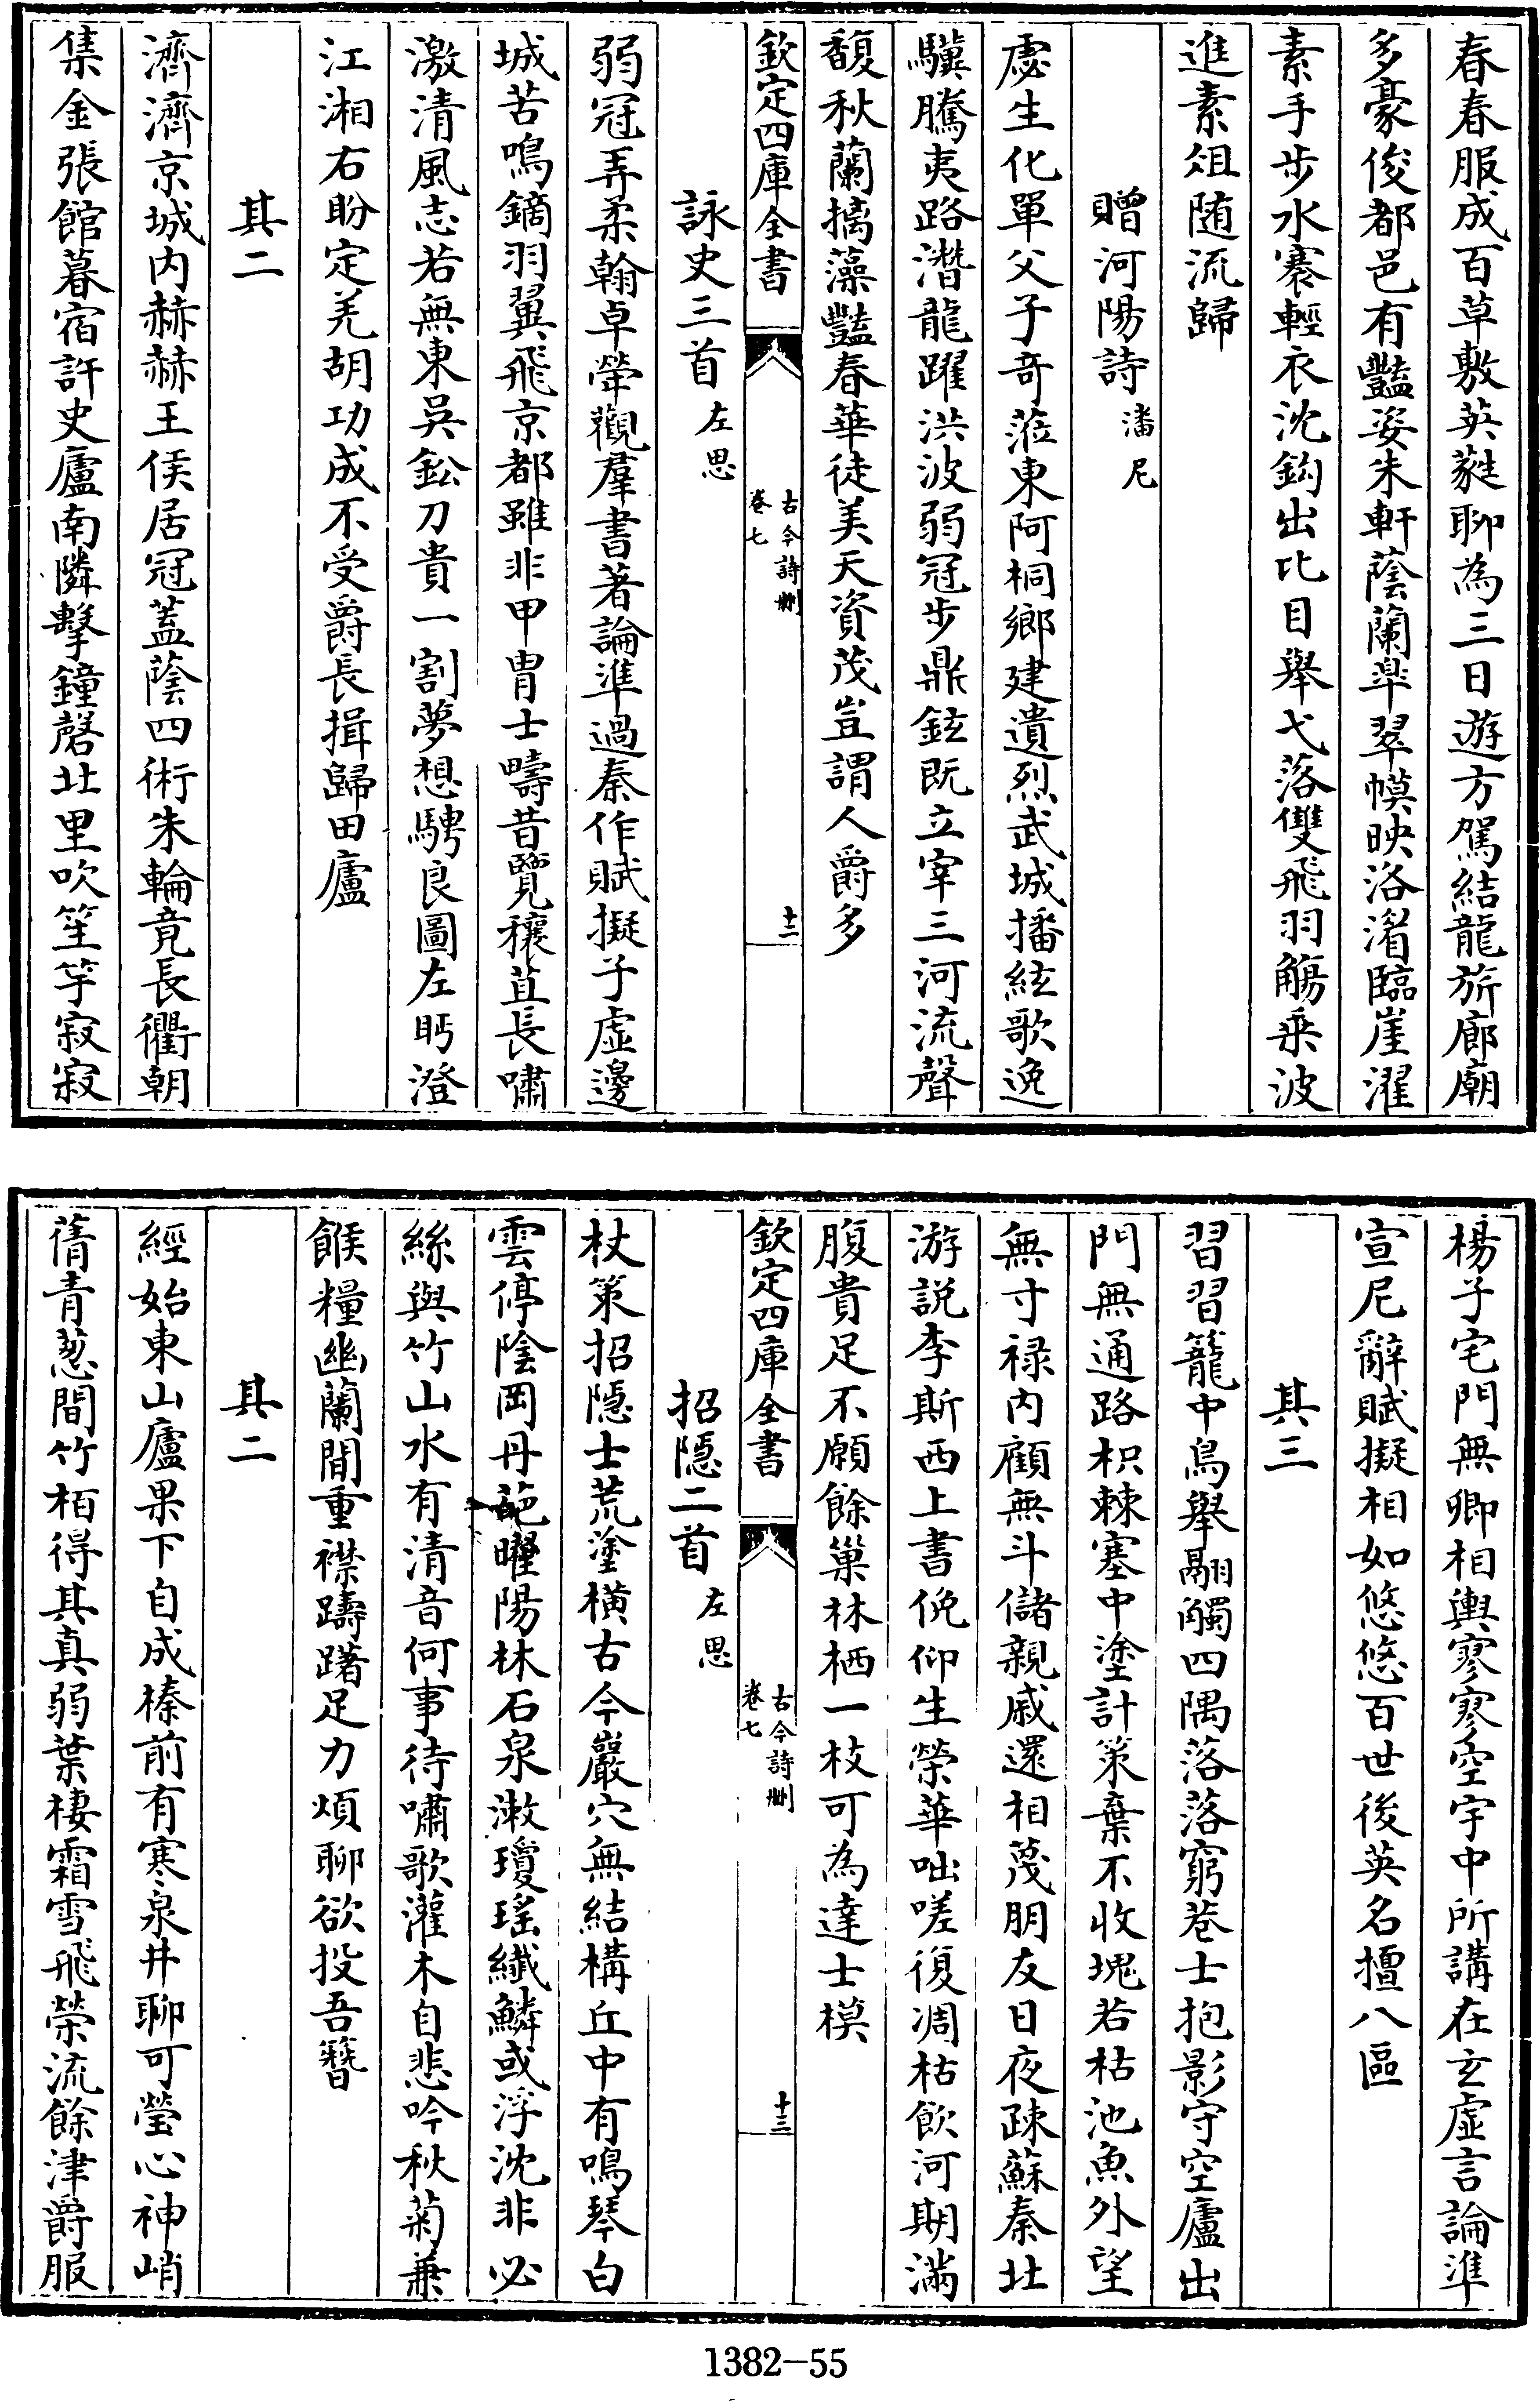 春春服成百草敷英蕤聊為三日遊方駕結龍旂廊廟
多豪俊都邑有豔姿朱軒蔭蘭皐翠幙映洛湄臨崖濯
素手步水褰輕衣沈鈎出比目舉弋落雙飛羽觴乗波
進素俎随流歸
贈河陽詩潘尼
虙生化單父子竒涖東阿桐鄉建遺烈武城播絃歌逸
驥騰夷路潛龍躍洪波弱冠步鼎鉉既立宰三河流聲
馥秋蘭摛藻豔春華徒美天資茂豈謂人爵多
欽定四庫全書
古今詩刪
卷七
十二
詠史三首左思
弱冠弄柔翰卓犖觀羣書著論準過秦作賦擬子虛邊
城苦鳴鏑羽翼飛京都雖非甲胄士疇昔覽穰苴長嘯
激清風志若無東吳鈆刀貴一割夢想騁良圖左眄澄
江湘右盼定羌胡功成不受爵長揖歸田廬
其二
濟濟京城内赫赫王侯居冠蓋蔭四術朱輪竟長衢朝
集金張館暮宿許史廬南隣擊鐘磬北里吹笙竽寂寂
楊子宅門無卿相輿寥寥空宇中所講在玄虛言論準
宣尼辭賦擬相如悠悠百世後英名擅八區
其三
習習籠中鳥舉翮觸四隅落落窮巷士抱影守空廬出
門無通路枳棘塞中塗計策棄不收塊若枯池魚外望
無寸禄内顧無斗儲親戚還相蔑朋友日夜疎蘇秦北
游説李斯西上書俛仰生榮華咄嗟復凋枯飲河期滿
腹貴足不願餘巢林栖一枝可為達士模
欽定四庫全書
古今詩刪
卷七
十三
招隱二首左思
杖策招隱士荒塗橫古今巖穴無結構丘中有鳴琴白
雲停陰岡丹葩曜陽林石泉漱瓊瑤纖鱗或浮沈非必
絲與竹山水有清音何事待嘯歌灌木自悲吟秋菊兼
餱糧幽蘭間重襟躊躇足力煩聊欲投吾簪
其二
經始東山廬果下自成榛前有寒泉井聊可瑩心神峭
蒨青葱間竹栢得其真弱葉棲霜雪飛榮流餘津爵服
1382-55